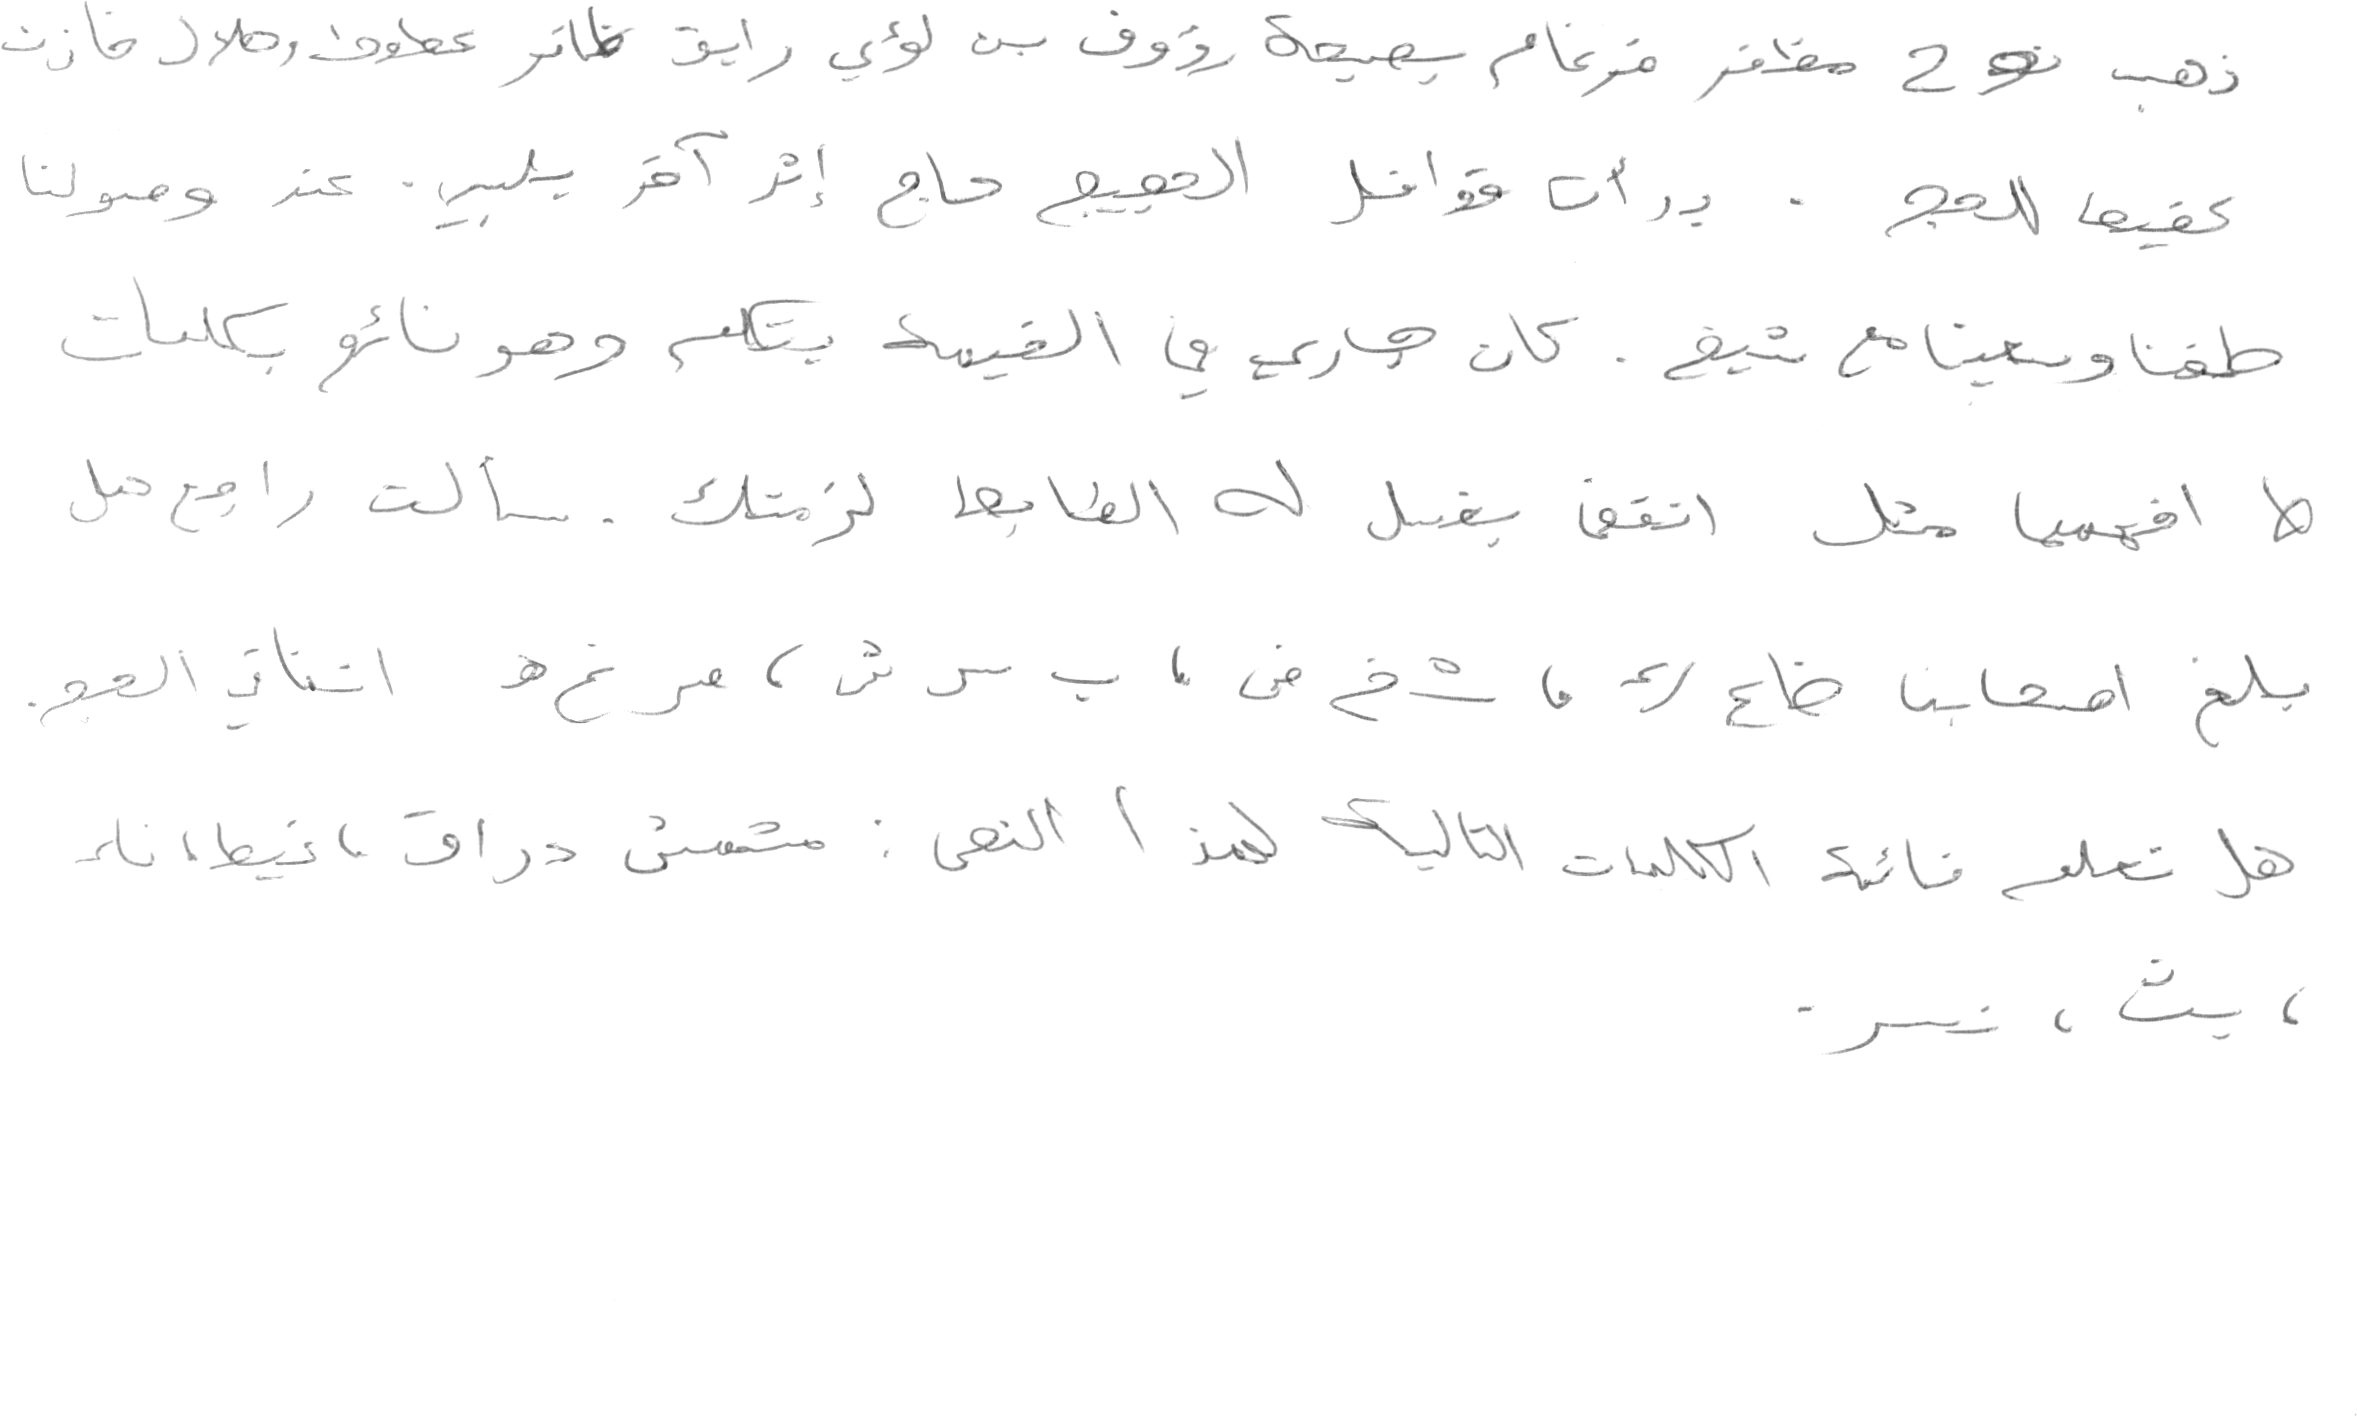 ذهب نوح مظفر ضرغام بصحبة رؤوف بن لؤي رايق ظافر عطوف وهلال خازن
كفيها الحج . بدأت قوافل الحجيج حاج إثر آخر يلبي . عند وصولنا
طفنا وسعينا مع شيخ . كان جاري في الخيمة يتكلم وهو نائم بكلمات
لا افهمها مثل اتقفا بغسل له الضابط لزمتك . سألت راجع هل
بلغ اصحابنا ضاع ك ، شخ ض ، ب س ش ، ص غ هـ اثناء الحج .
هل تعلم فائدة الكلمات التالية لهذا النص : مشمش دراق ، غيظ ، ناء
، بث ، نسر .